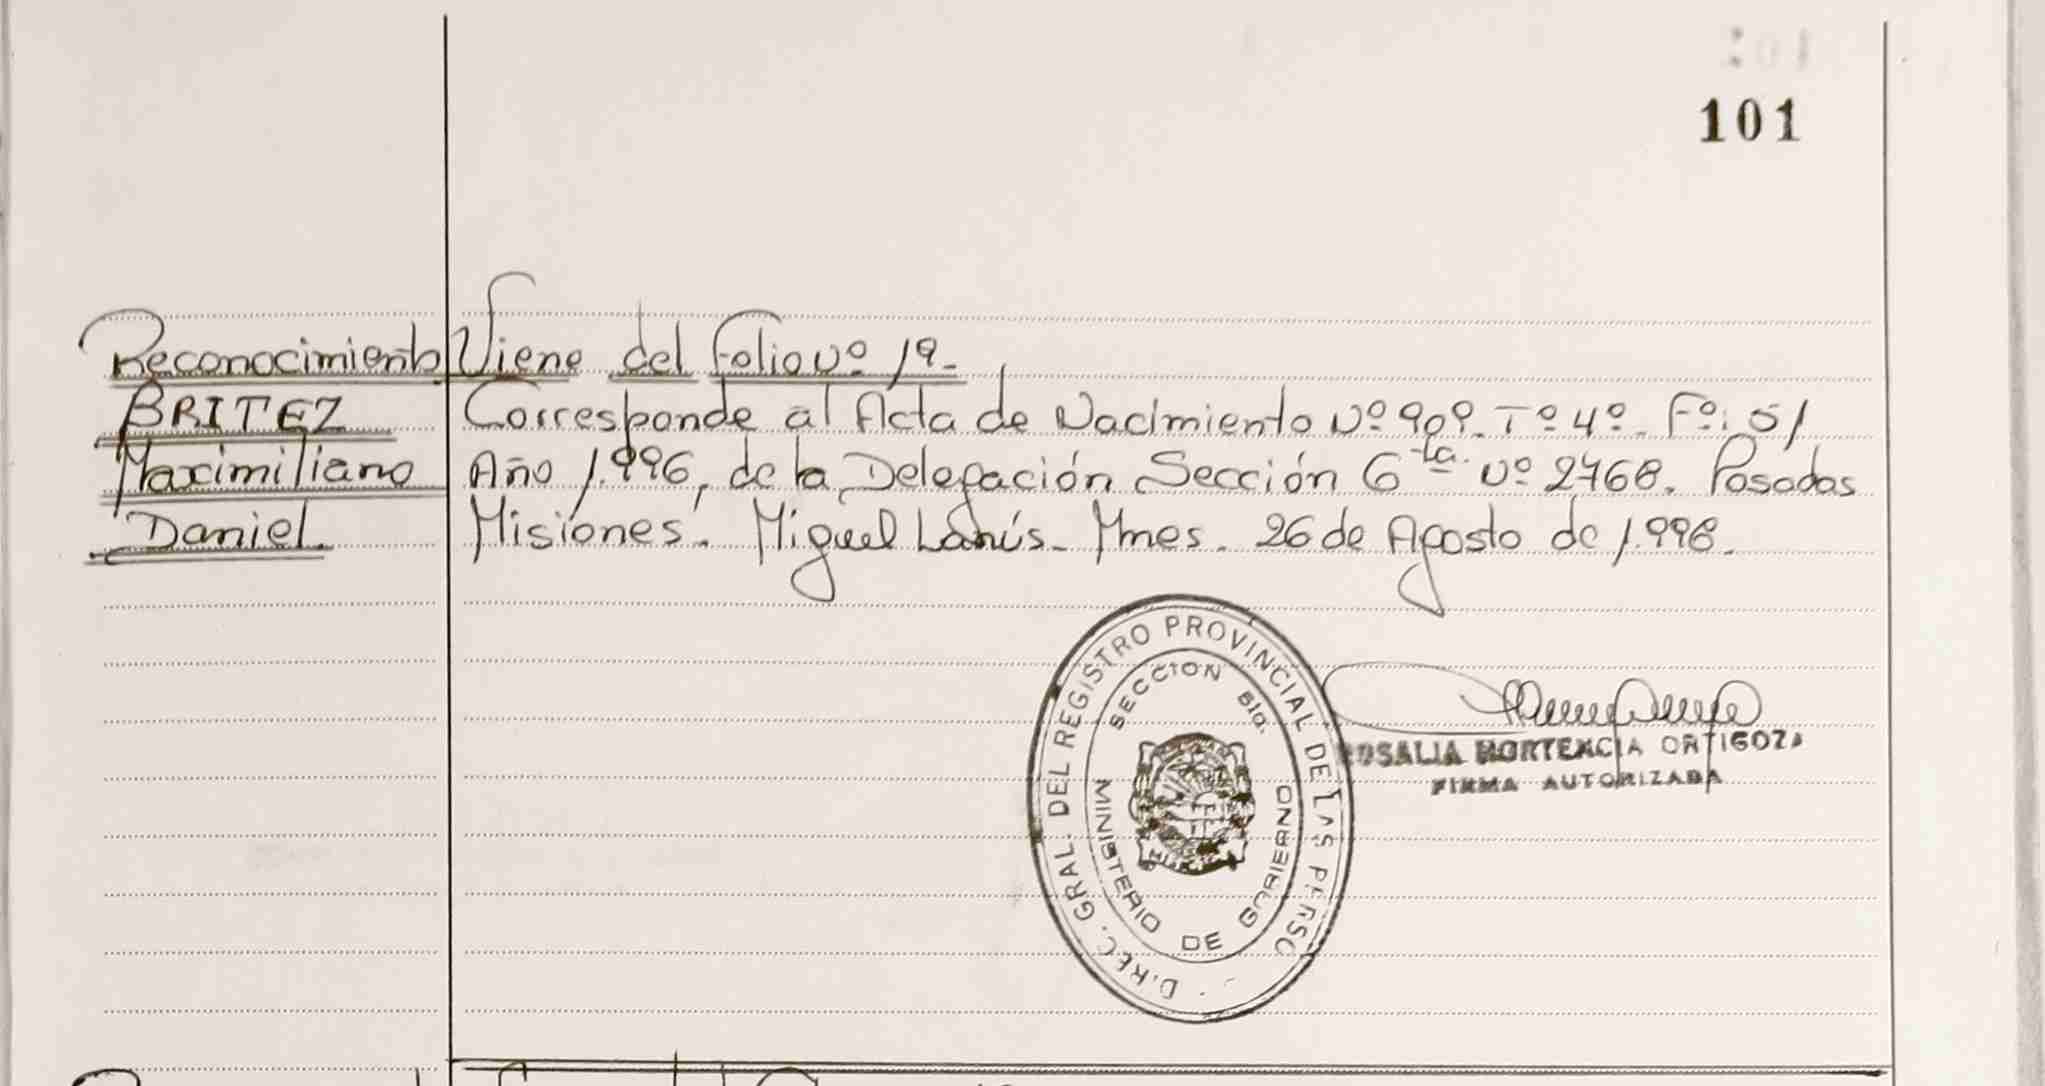 101
Reconocimiento Viene del Folio Nº 19-
BRITEZ Corresponde al Acta de Nacimiento Nº 909. Tº 4º. Fº: 51
Maximiliano Año 1.996, de la Delegación Sección 6ta. Nº 2768. Posadas
Daniel. Misiones. Miguel Lanús. Mnes. 26 de Agosto de 1.998.
D.REC. GRAL. DEL REGISTRO PROVINCIAL DE LAS PERSO
SECCION 6ta.
MINISTERIO DE GOBIERNO
ROSALIA HORTENCIA ORTIGOZA
FIRMA AUTORIZADA